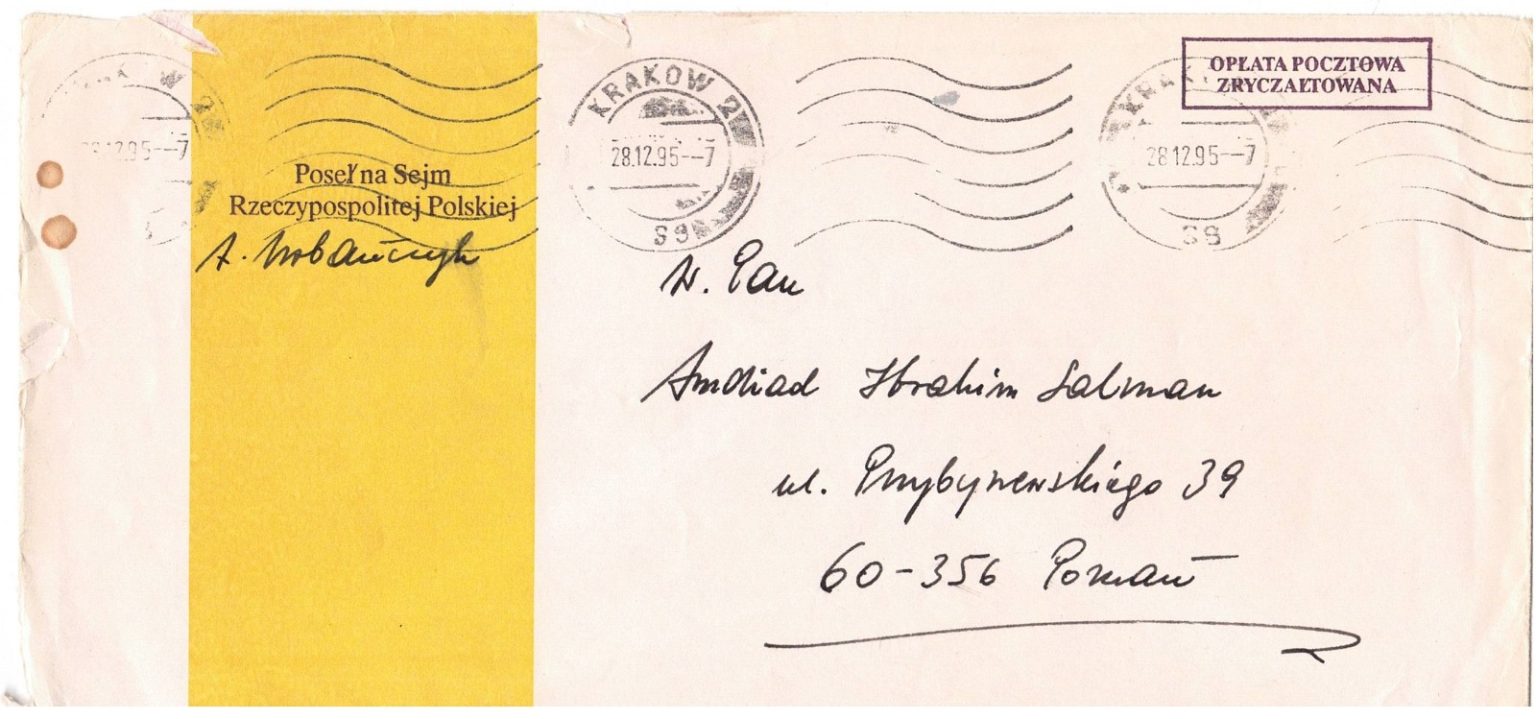 OPŁATA POCZTOWA
ZRYCZAŁTOWANA
KRAKOW 2
28.12.95--7
KRAKOW 2
28.12.95--7
KRAK
28.12.95--7
Poseł na Sejm
Rzeczypospolitej Polskiej
A.
W. Pan
Amdiad Ibrahim Salman
ul. Przybyszewskiego 39
60-356 Poznań